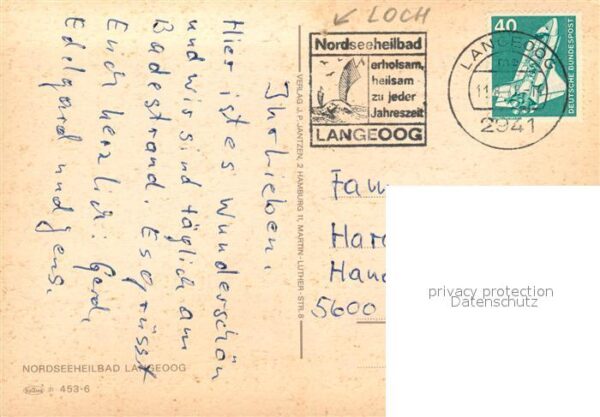 LOCH
Nordseeheilbad
erholsam,
heilsam
zu jeder
Jahreszeit
LANGEOOG
40
DEUTSCHE BUNDESPOST
LANGEOOG
2941
Ihr Lieben.
Hier ist es wunderschön
und wir sind täglich am
Badestrand. Es grüsst
Euch herzlich: Gerd,
Edelgard und Jens.
VERLAG J. P. JANTZEN, 2 HAMBURG 11, MARTIN-LUTHER-STR. 8
Fam
Har
Han
5600
privacy protection
Datenschutz
NORDSEEHEILBAD LANGEOOG
453-6